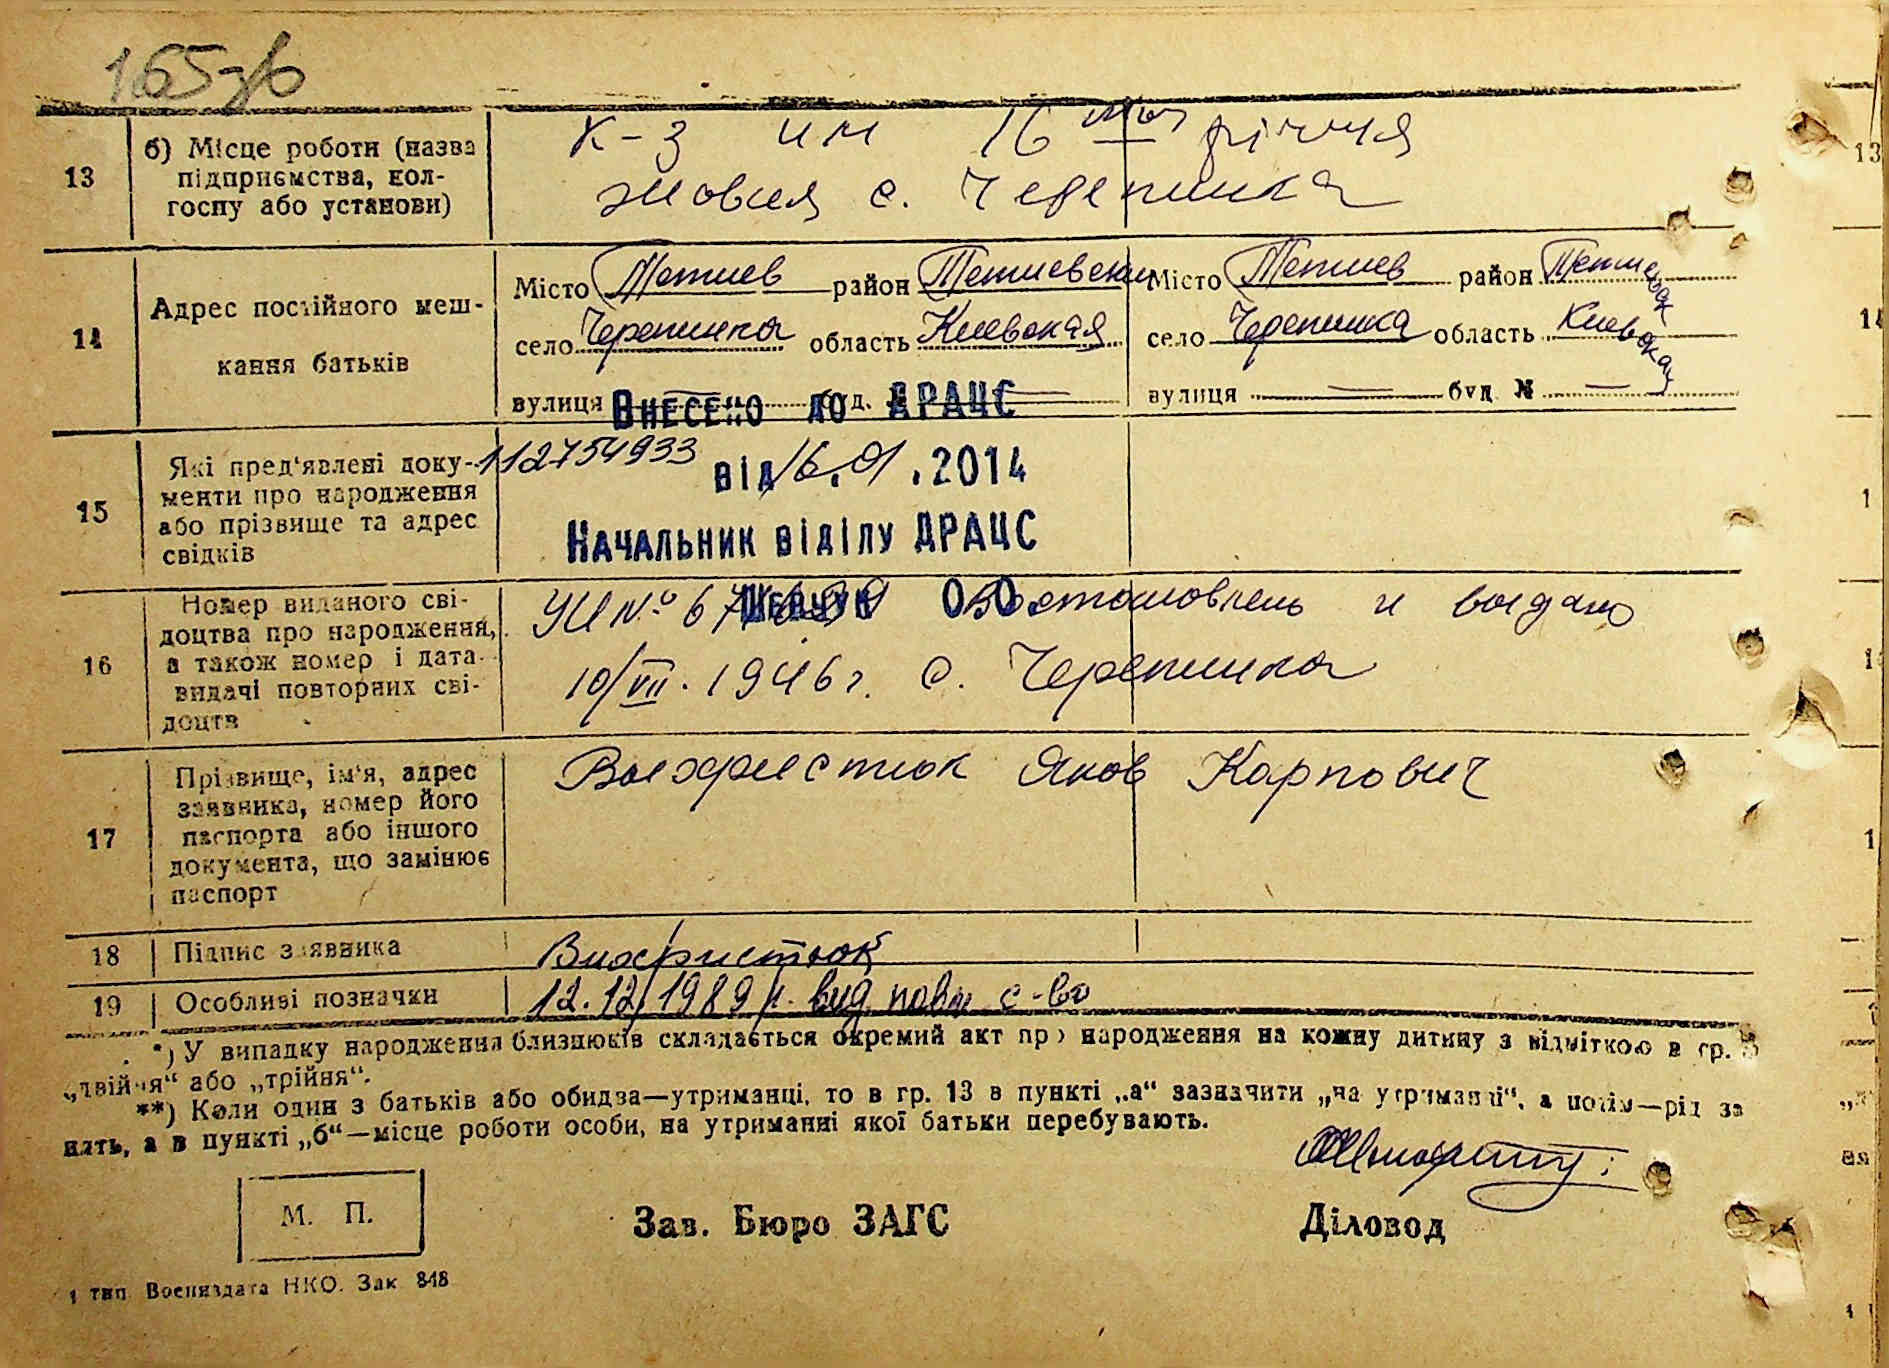 165-зв
13
б) Місце роботи (назва
підприємства, кол-
госпу або установи)
К-з им 16 річчя
Жовтня с. Черепинка
14
Адрес постійного меш-
кання батьків
Місто Тетиев район Тетиевский
село Черепинка область Киевская
вулиця буд. №
Місто Тетиев район Тетиевский
село Черепинка область Киевская
вулиця — буд. № —
Внесено до ДРАЦС
112754933 від 16.01.2014
Начальник відділу ДРАЦС
Шевчук О.О.
15
Які пред'явлені доку-
менти про народження
або прізвище та адрес
свідків
16
Номер виданого сві-
доцтва про народження,
а також номер і дата
видачі повторних сві-
доцтв
УИ № Востановлень и выдано
10/VII. 1946 г. с. Черепинка
17
Прізвище, ім'я, адрес
заявника, номер його
паспорта або іншого
документа, що замінює
паспорт
Выхристюк Яков Карпович
18
Підпис заявника
Вихристюк
19
Особливі позначки
12.12.1989 р. вид. повт. с-во
*) У випадку народження близнюків складається окремий акт про народження на кожну дитину з відміткою в гр. 3
„двійня“ або „трійня“.
**) Коли один з батьків або обидва—утриманці, то в гр. 13 в пункті „а“ зазначити „на утриманні“, а потім—рід за
нять, а в пункті „б“—місце роботи особи, на утриманні якої батьки перебувають.
М. П.
Зав. Бюро ЗАГС
Діловод
1 тип Воениздата НКО. Зак 848